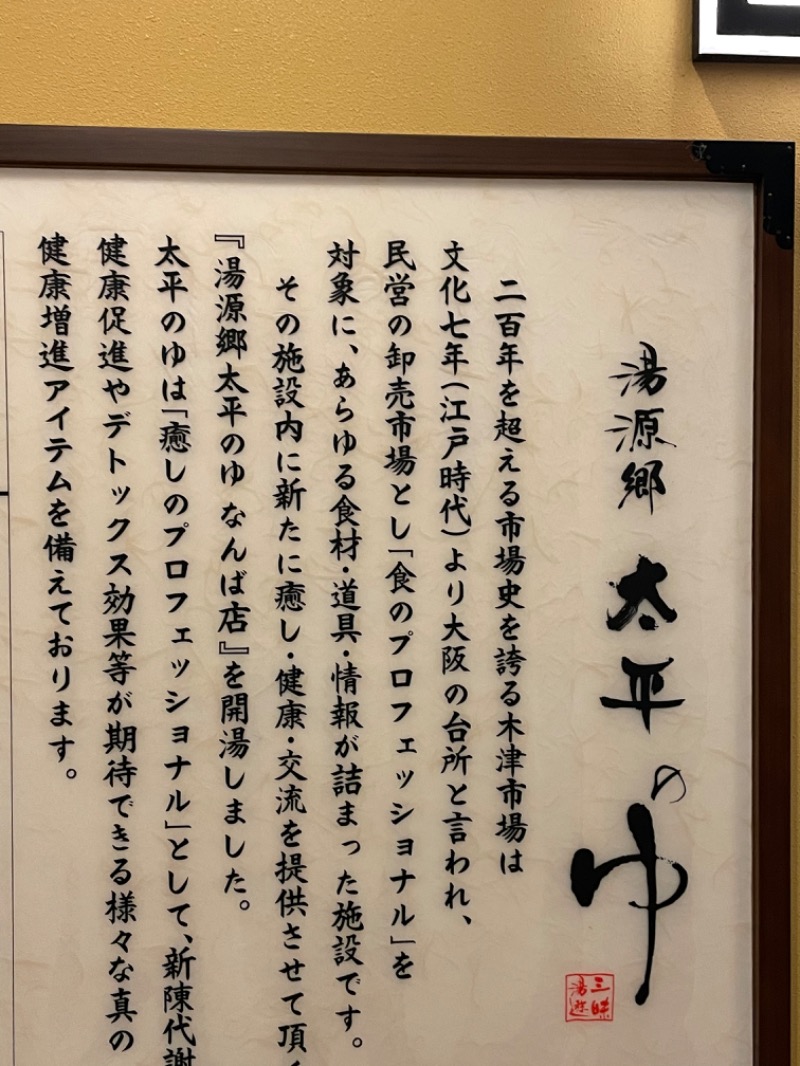 湯源郷 太平のゆ
二百年を超える市場史を誇る木津市場は
文化七年(江戸時代)より大阪の台所と言われ、
民営の卸売市場とし「食のプロフェッショナル」を
対象に、あらゆる食材・道具・情報が詰まった施設です。
その施設内に新たに癒し・健康・交流を提供させて頂く
『湯源郷太平のゆ なんば店』を開湯しました。
太平のゆは「癒しのプロフェッショナル」として、新陳代謝
健康促進やデトックス効果等が期待できる様々な真の
健康増進アイテムを備えております。
三昧
湯遊